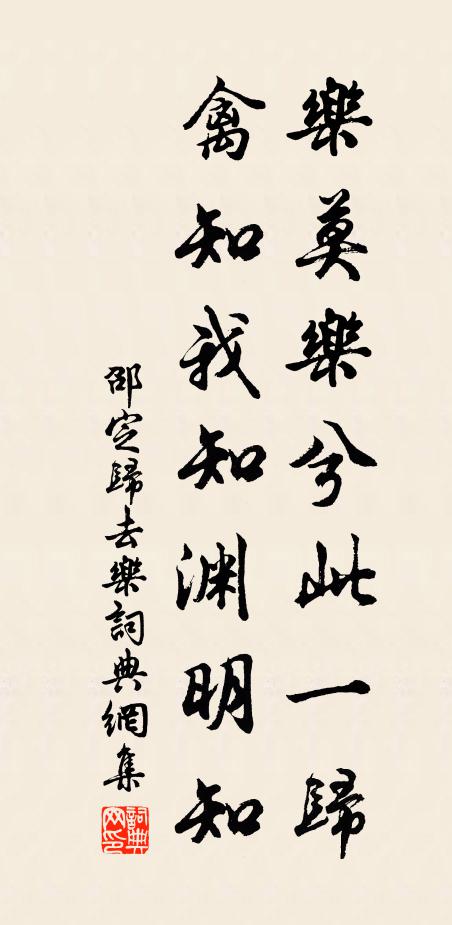 樂莫樂兮此一歸
禽知我知渊明知
邵定歸去樂詞典網集
詞典网印